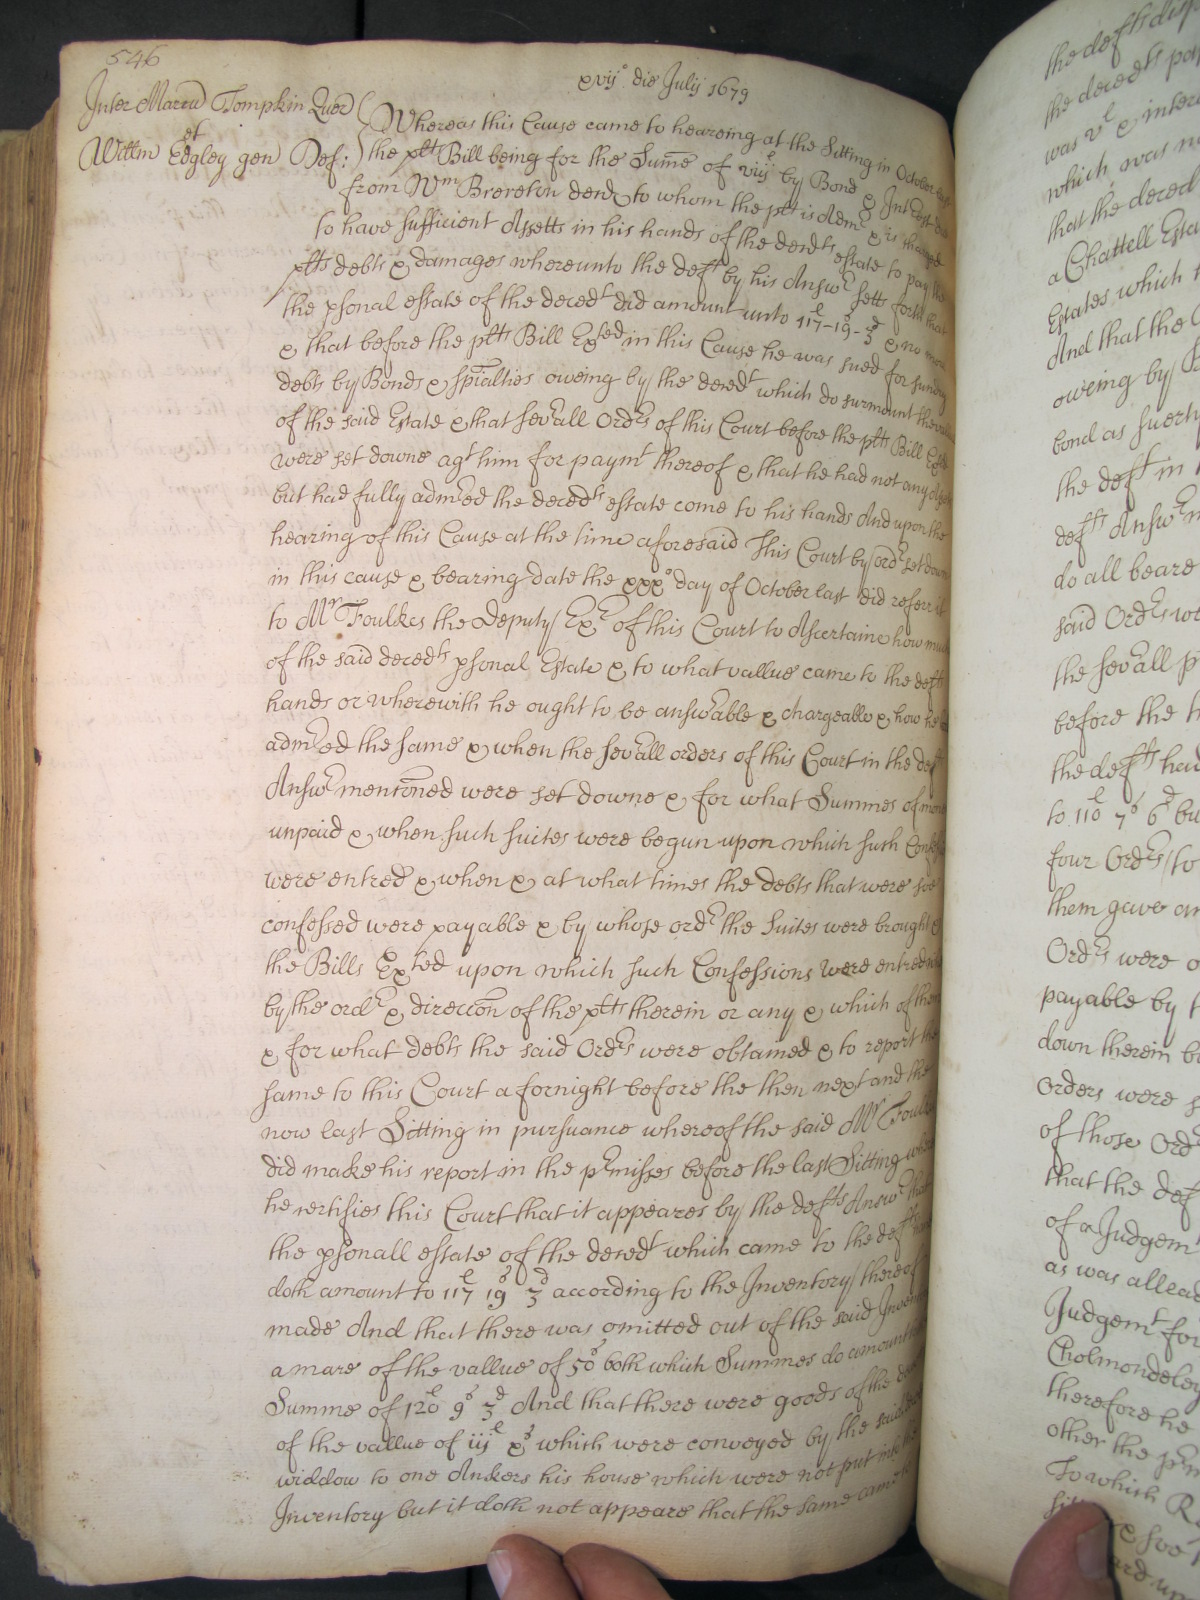 546
xvijo die Julij 1679
Inter Marcu Tompkin Quer
et
Willm Edgley gen Def:
Whereas this Cause came to heareing at the Sitting in October last
the plts Bill being for the Sume of viijl by Bond & Interest due
from Wm Brereton decd to whom the plt is Admr & is charged
to have sufficient Assetts in his hands of the decdts estate to pay the
plts debts & damages whereunto the deft by his Answr setts forth that
the psonal estate of the decedt did amount unto 117l-19s-3d & no more
& that before the plts Bill Exted in this Cause he was sued for sundry
debts by Bonds & spialties oweing by the decedt which do surmount the vallue
of the said Estate & that sevall Ordrs of this Court before the plts Bill Exted
were set downe agt him for paymt thereof & that he had not any Assetts
but had fully admred the decedts estate come to his hands And upon the
hearing of this Cause at the time aforesaid This Court by ordr set down
in this cause & bearing date the xxxo day of October last did referr it
to Mr Foulkes the Deputy Exr of this Court to Ascertaine how much
of the said decedts psonal Estate & to what vallue came to the defts
hands or wherewith he ought to be answrable & chargeable & how he
admred the same & when the sevrall orders of this Court in the defts
Answr mentioned were set downe & for what Summes of money
unpaid & when such suites were begun upon which such
were entred & when & at what times the debts that were soe
confessed were payable & by whose ordr the Suites were brought &
the Bills Exted upon which such Confessions were entred
by the ordr & direccon of the plts therein or any & which of them
& for what debts the said Ordrs were obtained & to report the
same to this Court a fornight before the then next and the
now last Sitting in pursuance whereof the said Mr Foulkes
did make his report in the prmisses before the last Sitting
he certifies this Court that it appeares by the defts Answr that
the psonall estate of the decedt which came to the defts hands
doth amount to 117l 19s 3d according to the Inventory thereof
made And that there was omitted out of the said Inventory
a mare of the vallue of 50s both which Summes do amount
Summe of 120l 9s 3d And that there were goods of the
of the vallue of iijl xs which were conveyed by the said
widdow to one Ankers his house which were not put into the
Inventory but it doth not appeare that the same came
the defts
the decedts
was vl & inter
which was
that the deced
a Chattell Esta
Estates which
And that the
oweing by
bond as suerty
the deft in
defts Answr
do all beare
said Ordrs
the sevrall
before the
the defts had
to 110l 7s 6d bu
four Ordrs to
them gave an
Ordrs were
payable by
down therein
Orders were
of those Ordr
that the def
of a Judgemt
as was allead
Judgemt for
Cholmondeley
therefore he
other the prm
To which